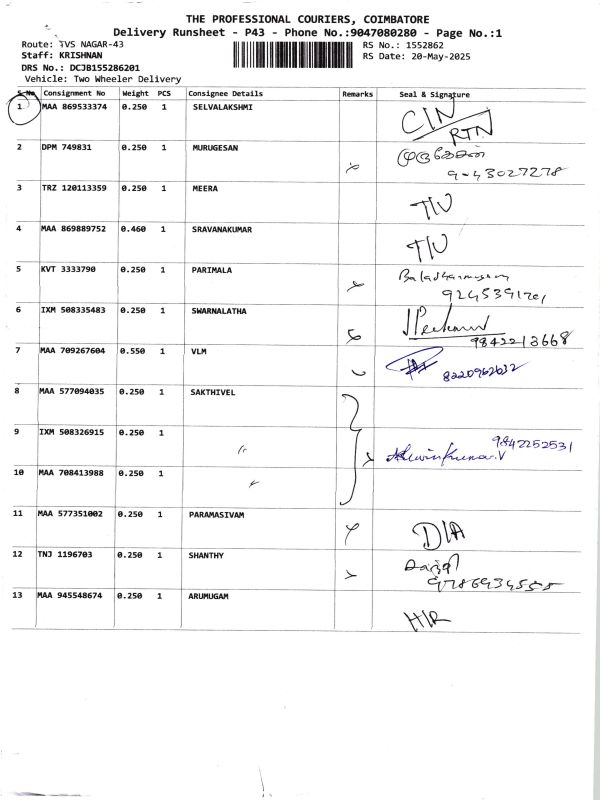 THE PROFESSIONAL COURIERS, COIMBATORE
Delivery Runsheet - P43 - Phone No.:9047080280 - Page No.:1
Route: TVS NAGAR-43
RS No.: 1552862
Staff: KRISHNAN
RS Date: 20-May-2025
DRS No.: DCJB155286201
Vehicle: Two Wheeler Delivery
S.No Consignment No Weight PCS Consignee Details Remarks Seal & Signature
1 MAA 869533374 0.250 1 SELVALAKSHMI CIN
RTN
2 DPM 749831 0.250 1 MURUGESAN முருகேசன்
9-43027278
3 TRZ 120113359 0.250 1 MEERA
4 MAA 869889752 0.460 1 SRAVANAKUMAR
5 KVT 3333790 0.250 1 PARIMALA
6 IXM 508335483 0.250 1 SWARNALATHA
9842213668
7 MAA 709267604 0.550 1 VLM
8220962632
8 MAA 577094035 0.250 1 SAKTHIVEL
9 IXM 508326915 0.250 1 〃 9842252531
AshwinKumar.V
10 MAA 708413988 0.250 1 〃
11 MAA 577351002 0.250 1 PARAMASIVAM D/A
12 TNJ 1196703 0.250 1 SHANTHY
13 MAA 945548674 0.250 1 ARUMUGAM H/R